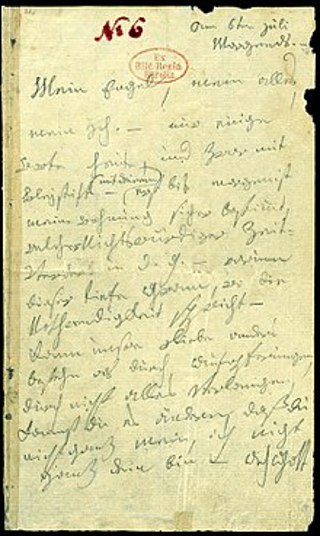 № 6
am 6ten Juli
Morgends. –
Ex
Bibl. Regia
Berolin.
Mein Engel, mein alles,
mein Ich. – nur einige
Worte heute, und zwar mit
Bleystift – (mit deinem) erst bis morgen ist
meine Wohnung sicher bestimmt,
welcher Nichtswürdiger Zeit-
verderb in d. g. – warum
dieser tiefe Gram, wo die
Nothwendigkeit spricht –
Kann unsre Liebe anders
bestehn als durch Aufopferungen,
durch nicht alles verlangen,
kannst du es ändern, daß du
nicht ganz mein, ich nicht
ganz dein bin – Ach Gott